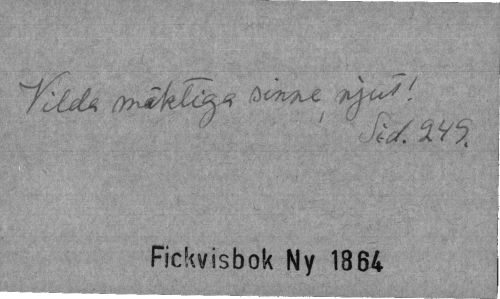 Vilda mäktiga sinne, njut!
Sid. 249.
Fickvisbok Ny 1864